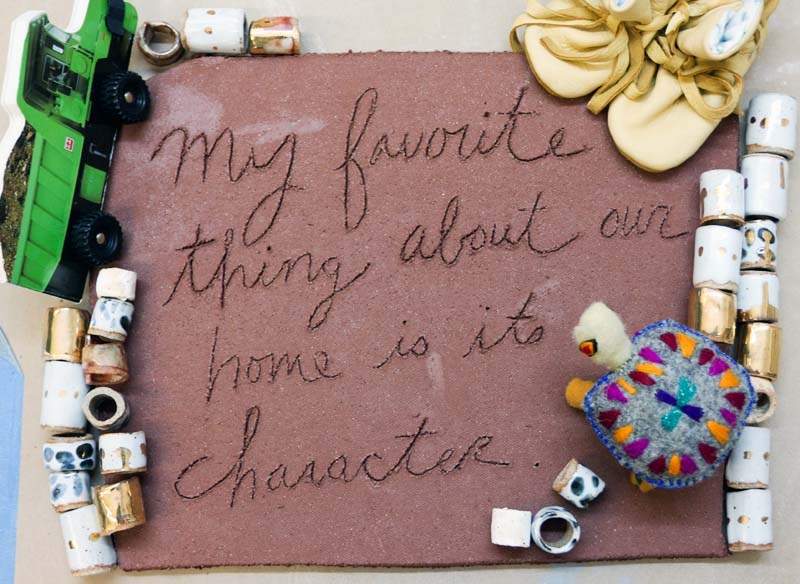 My favorite
thing about our
home is its
character.